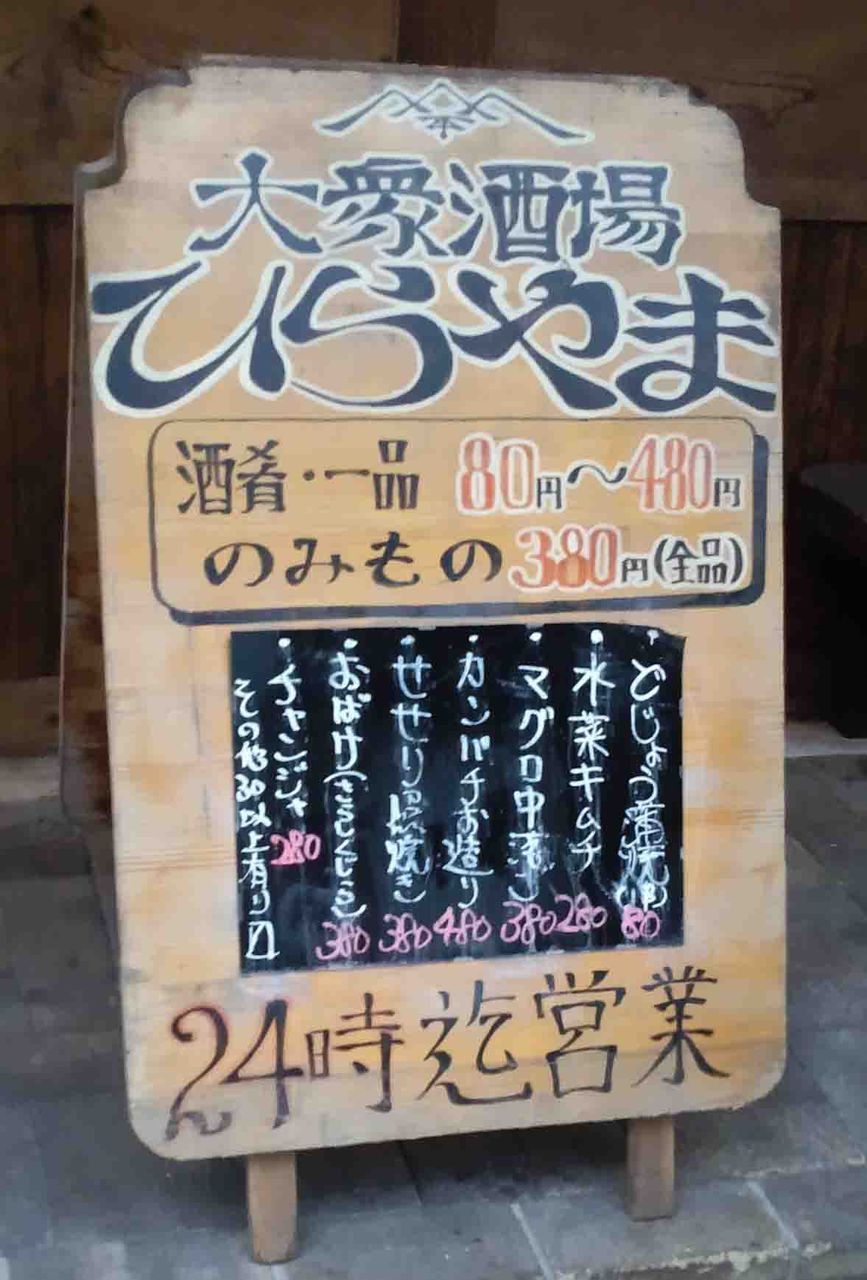 大衆酒場
ひらやま
酒肴・一品 80円〜480円
のみもの 380円(全品)
・どじょう蒲焼 80
・水菜キムチ 280
・マグロ中落ち 380
・カンパチお造り 480
・せせり焼き 380
・おばけ(さらしくじら) 380
・チャンジャ 280
その他30以上有り〼
24時迄営業